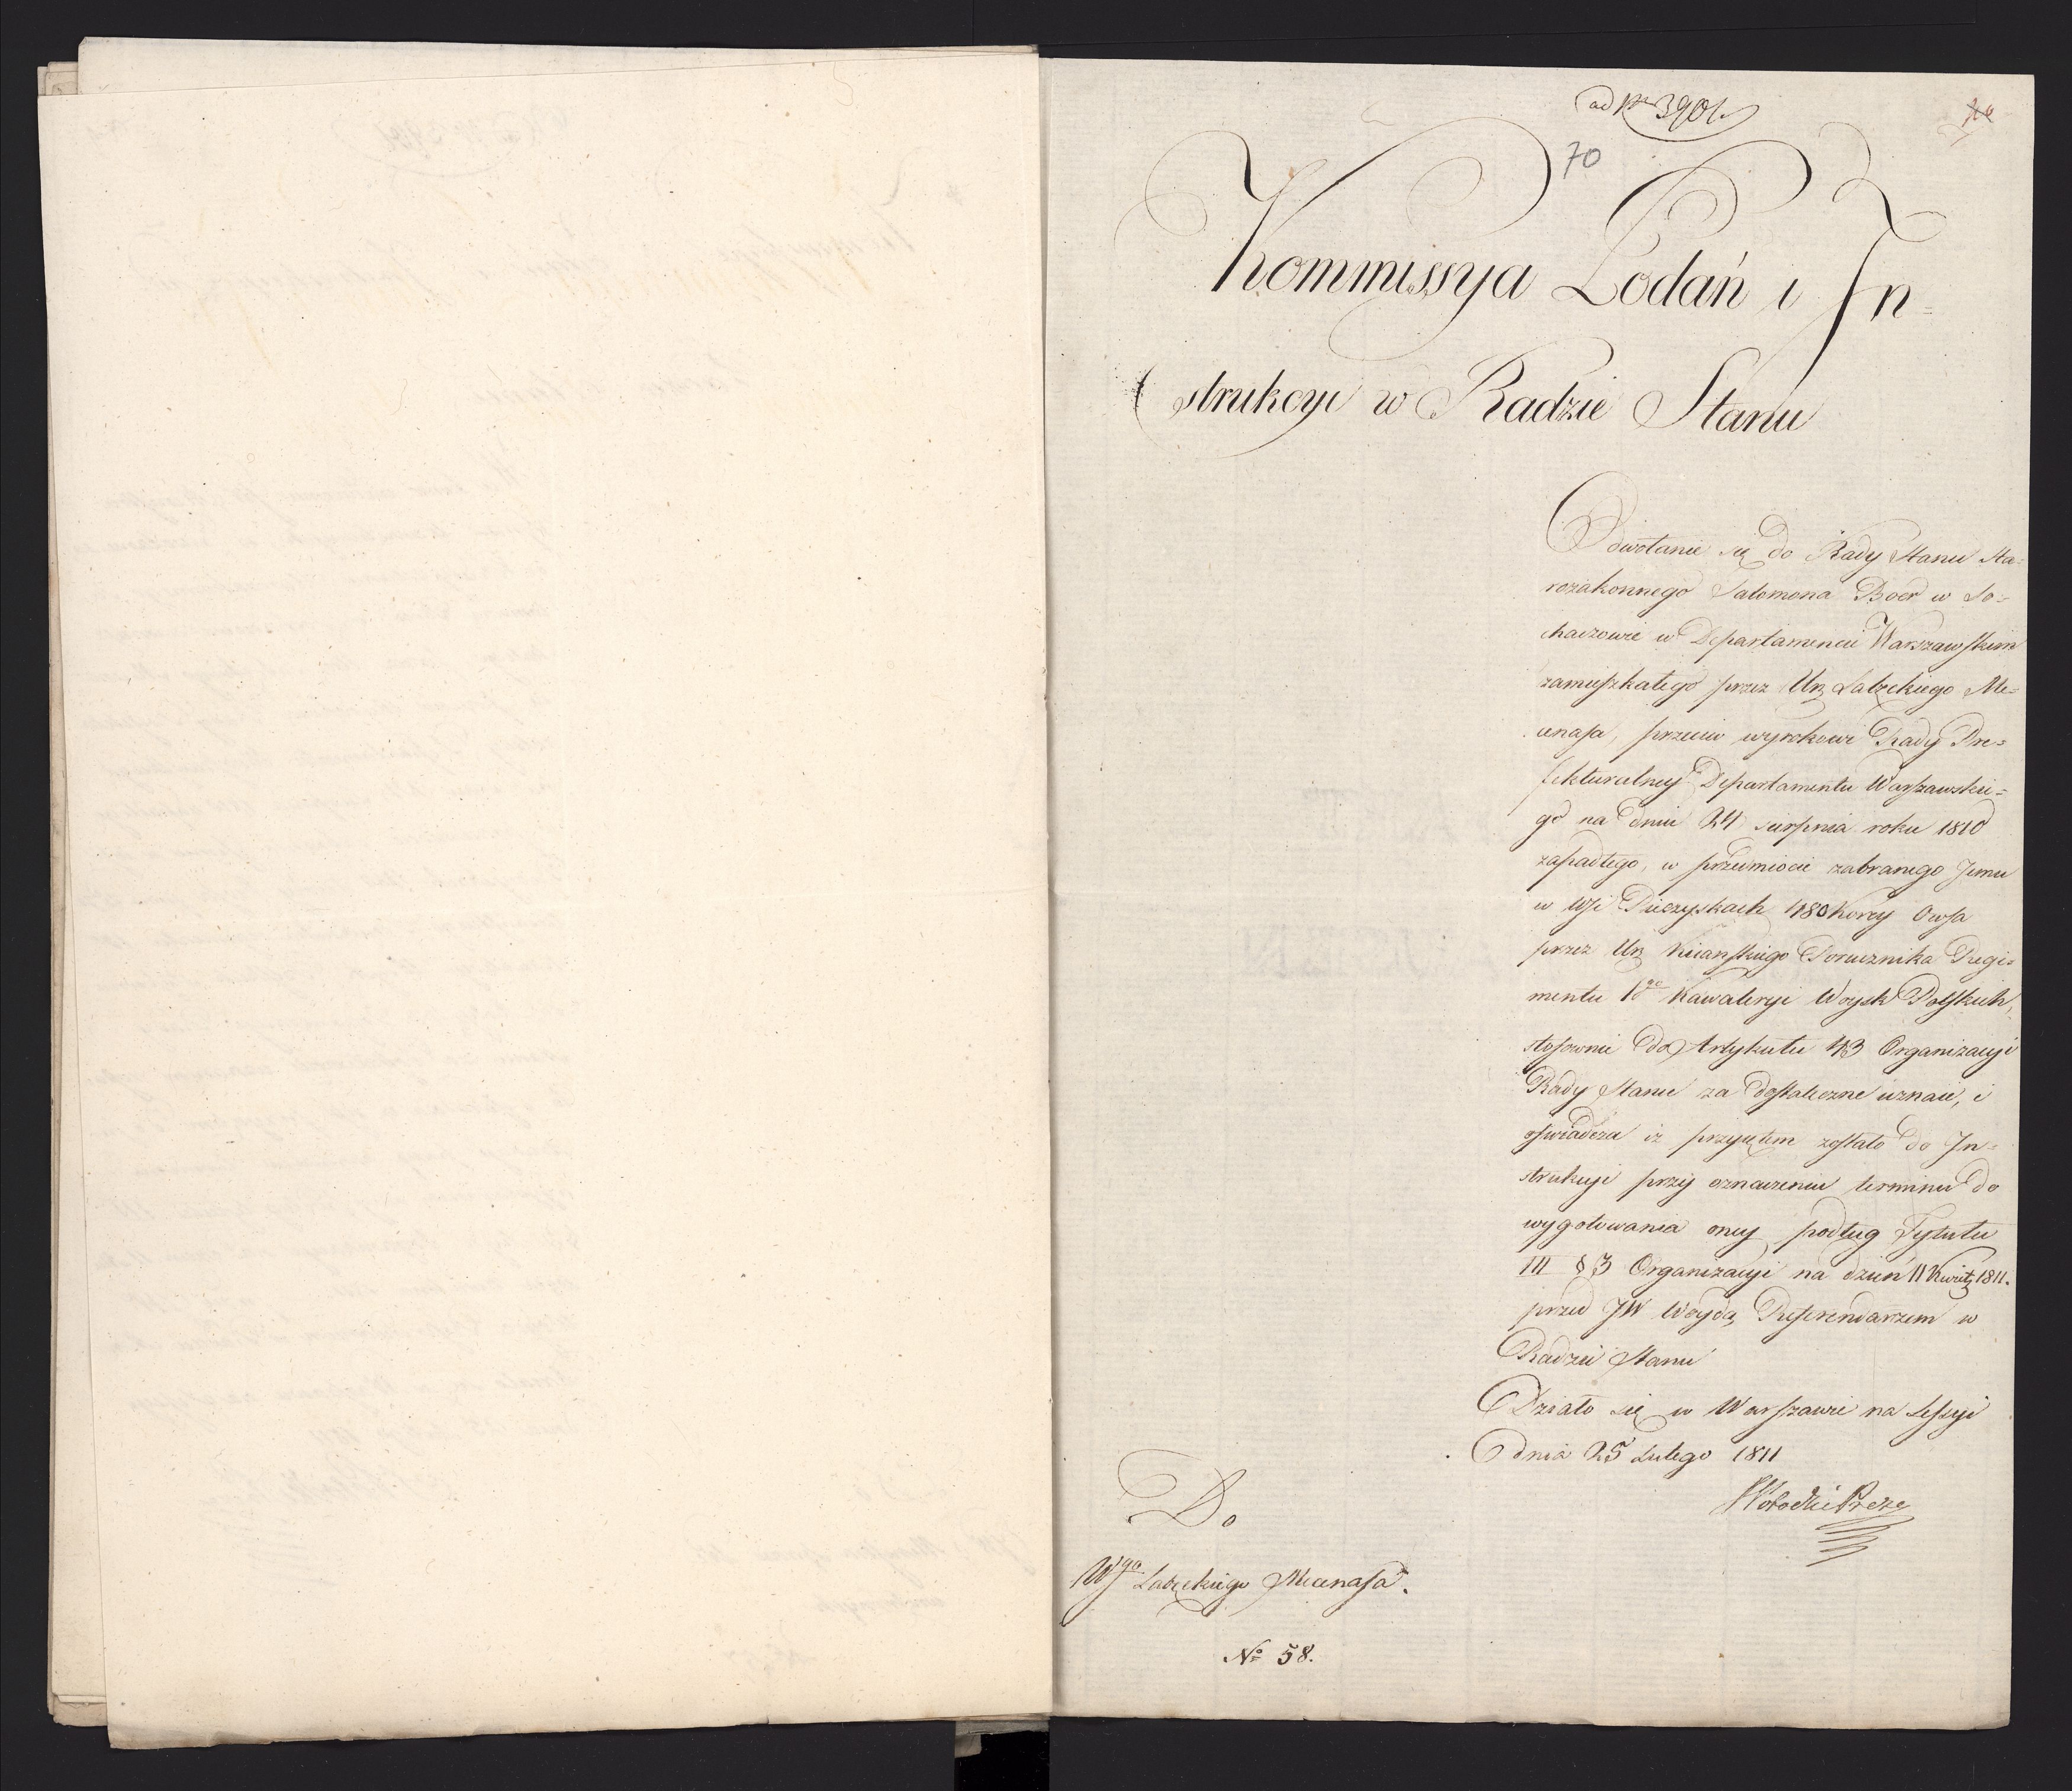 ad Nr 3901.
70
Kommissya Podań i In=
strukcyi w Radzie Stanu
Odwołanie się do Rady Stanu Sta=
rozakonnego Salomona Boer w So=
chaczewie w Departamencie Warszawskim
zamieszkałego przez Ur. Łabęckiego Me=
cenasa, przeciw wyrokowi Rady Pre=
fekturalney Departamentu Warszawskie=
go na dniu 24 sierpnia roku 1810
zapadłego, w przedmiocie zabranego Jemu
w Wsi Piiczyskach 480 Korcy Owsa
przez Ur. Kicańskiego Porucznika Regi=
mentu 1go Kawaleryi Woysk Polskich,
stosownie do Artykułu 43 Organizacyi
Rady Stanu za dostateczne uznaie, i
oświadcza iż przyiętem zostało do In=
strukcyi przy oznaczeniu terminu do
wygotowania oney podług Tytułu
III § 3 Organizacyi na dzień 11 Kwiet. 1811.
przed JW Woydą Referendarzem w
Radzie Stanu
Działo się w Warszawie na Sessyi
dnia 25 Lutego 1811
Prezes
Do
Wgo Łabęckiego Mecenasa.
No 58.